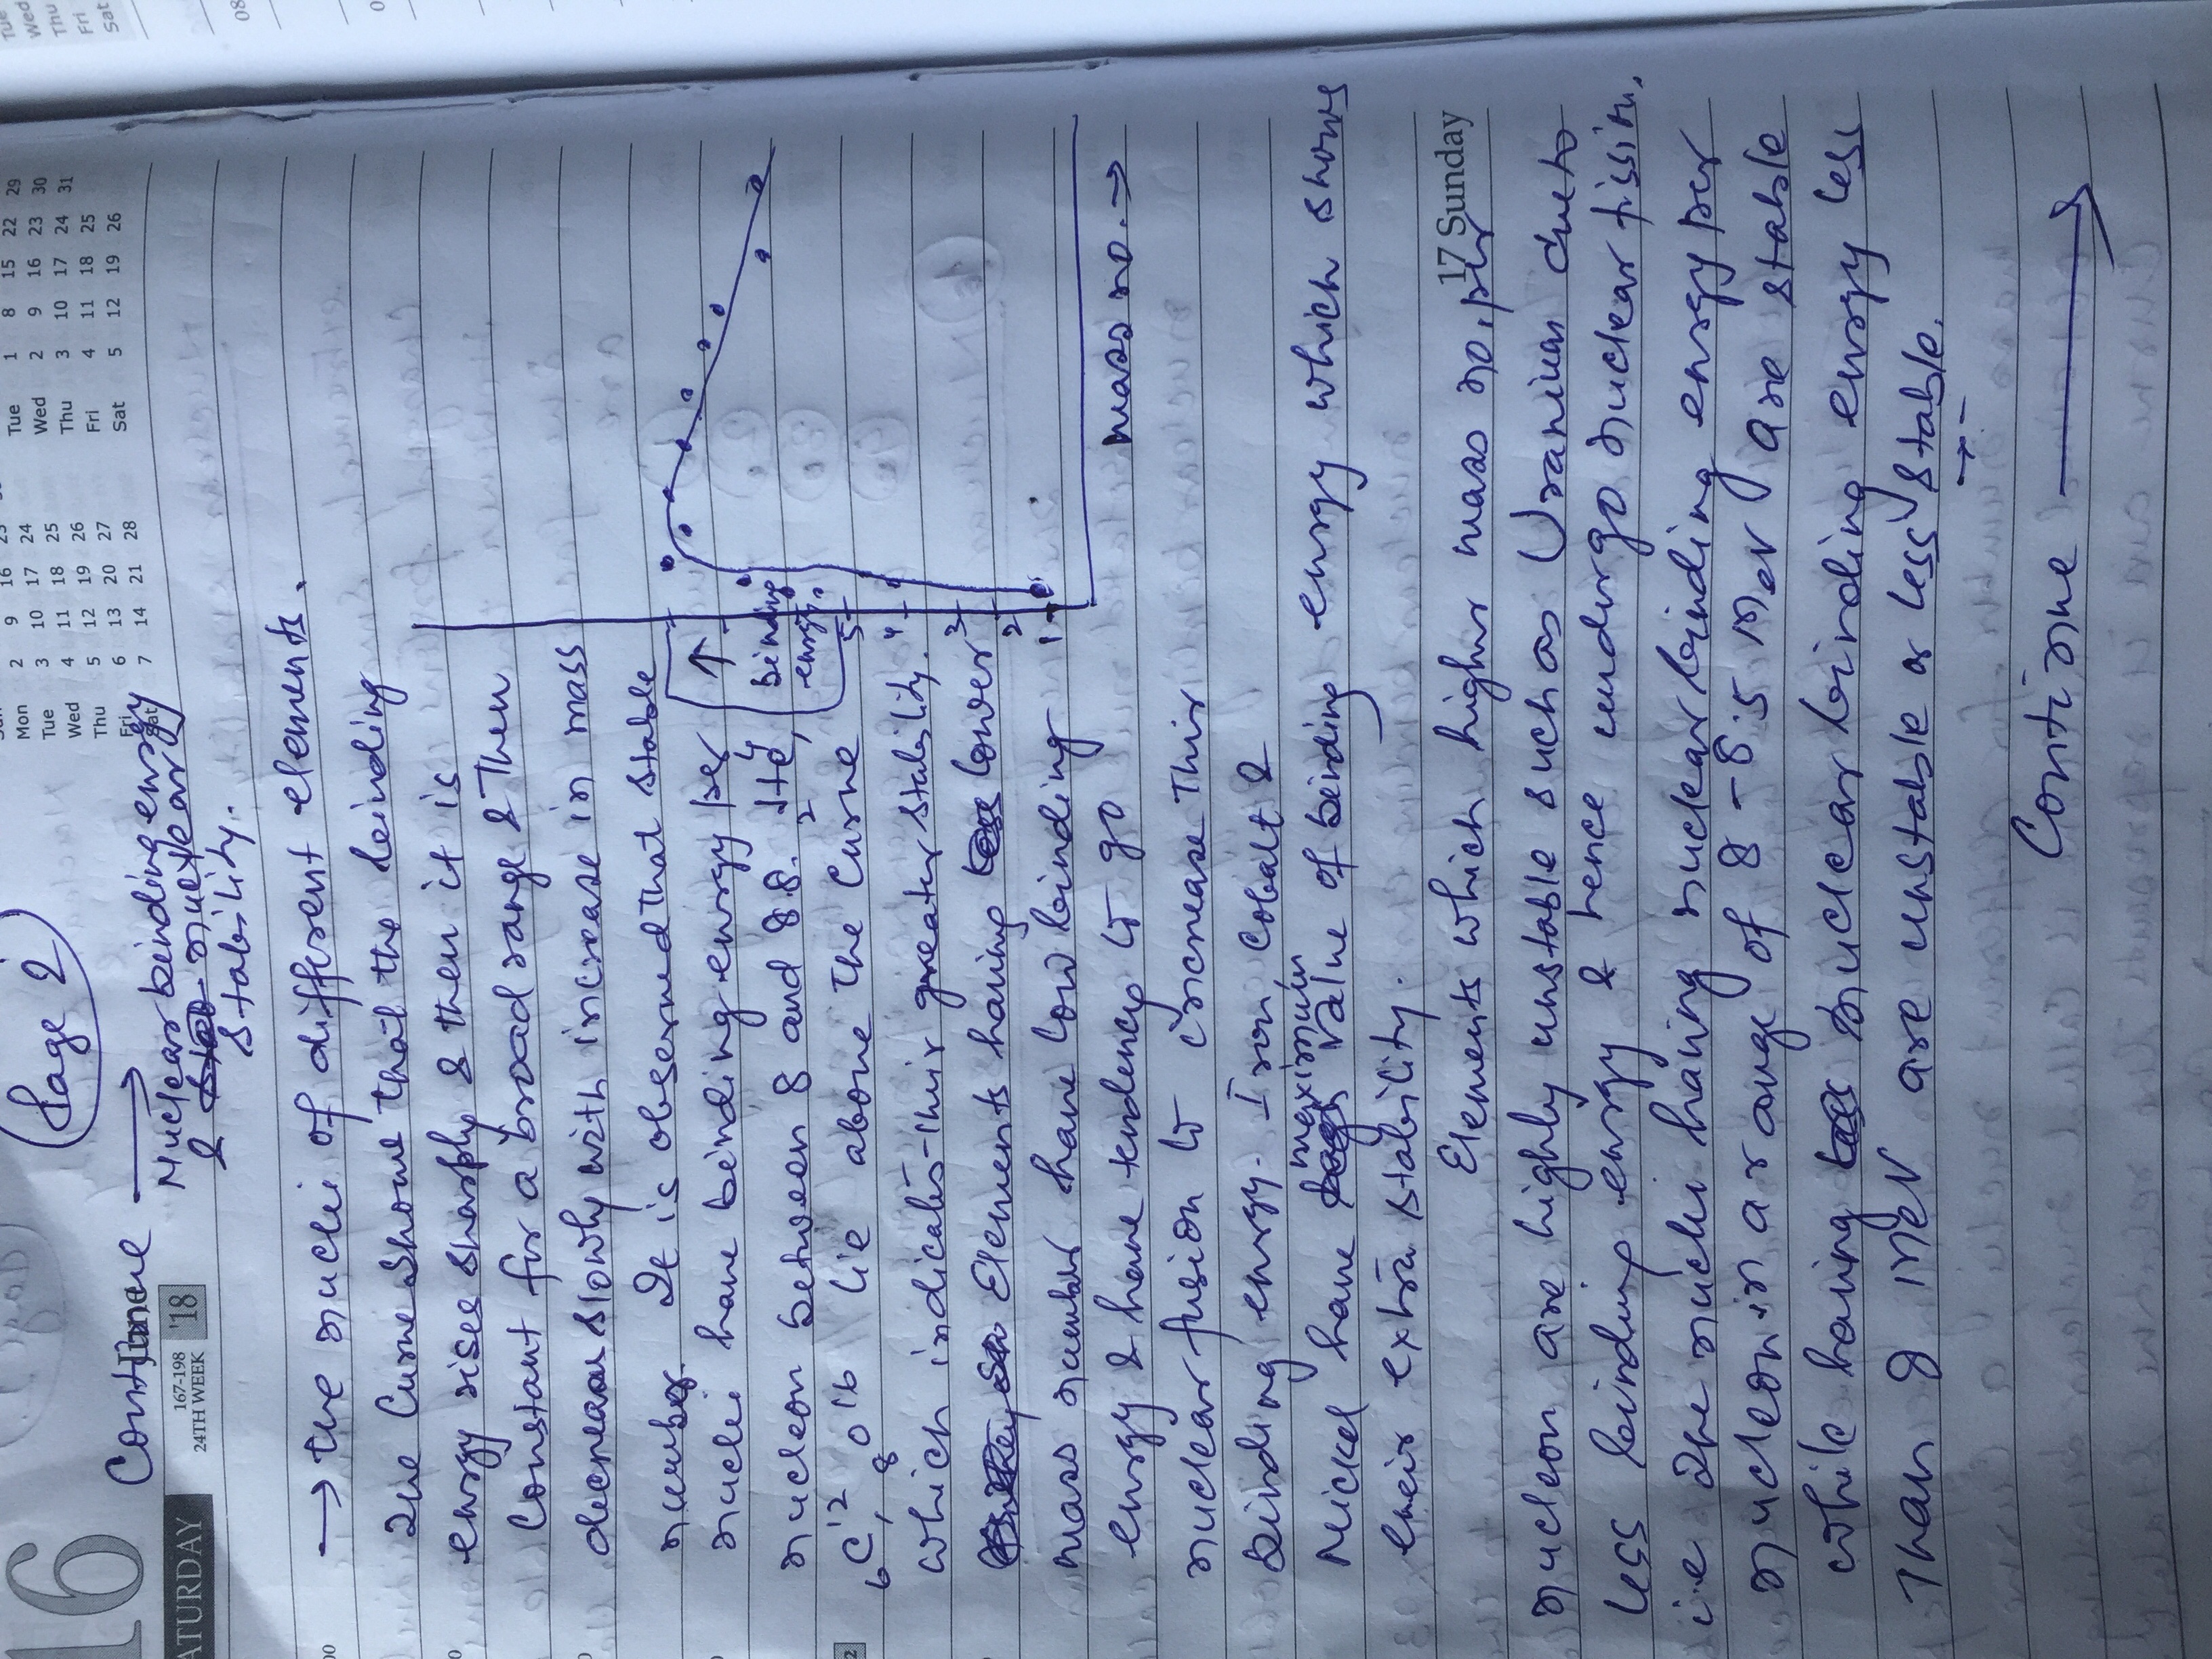 Page 2
16
SATURDAY
167-198
24TH WEEK
June '18
Continue →
Nuclear binding energy
& nuclear
stability.
→ the nuclei of different elements.
The Curve Shone that the beinding
energy rises sharply & then it is
Constant for a broad range & Then
decreases slowly with increase in mass
number. It is observed that stable
nuclei have beinding energy per
nucleon between 8 and 8.8. 2He4,
6C12, 8O16 lie above the Curve
which indicates their greater stability.
Elements having lower
mass number have low beinding
energy & have tendency to go
nuclear fusion to increase Their
Beinding energy. Iron, Cobalt &
Nickel have maximum value of beinding energy which shows
their extra stability.
17 Sunday
Elements which higher mass no, per
nucleon are highly unstable such as Uranium due to
less beinding energy & hence undergo nuclear fission.
i.e The nuclei having nuclear beinding energy per
nucleon in a range of 8 – 8.5 Mev are stable
while having nuclear beinding energy less
Than 8 MeV are unstable or less stable.
Continue →
↑
beinding
energy
5
4
3
2
1
mass no. →
Mon 2 9 16
Tue 3 10 17 24
Wed 4 11 18 25
Thu 5 12 19 26
Fri 6 13 20 27
Sat 7 14 21 28
Tue 1 8 15 22 29
Wed 2 9 16 23 30
Thu 3 10 17 24 31
Fri 4 11 18 25
Sat 5 12 19 26
Tue
Wed
Thu
Fri
Sat
08